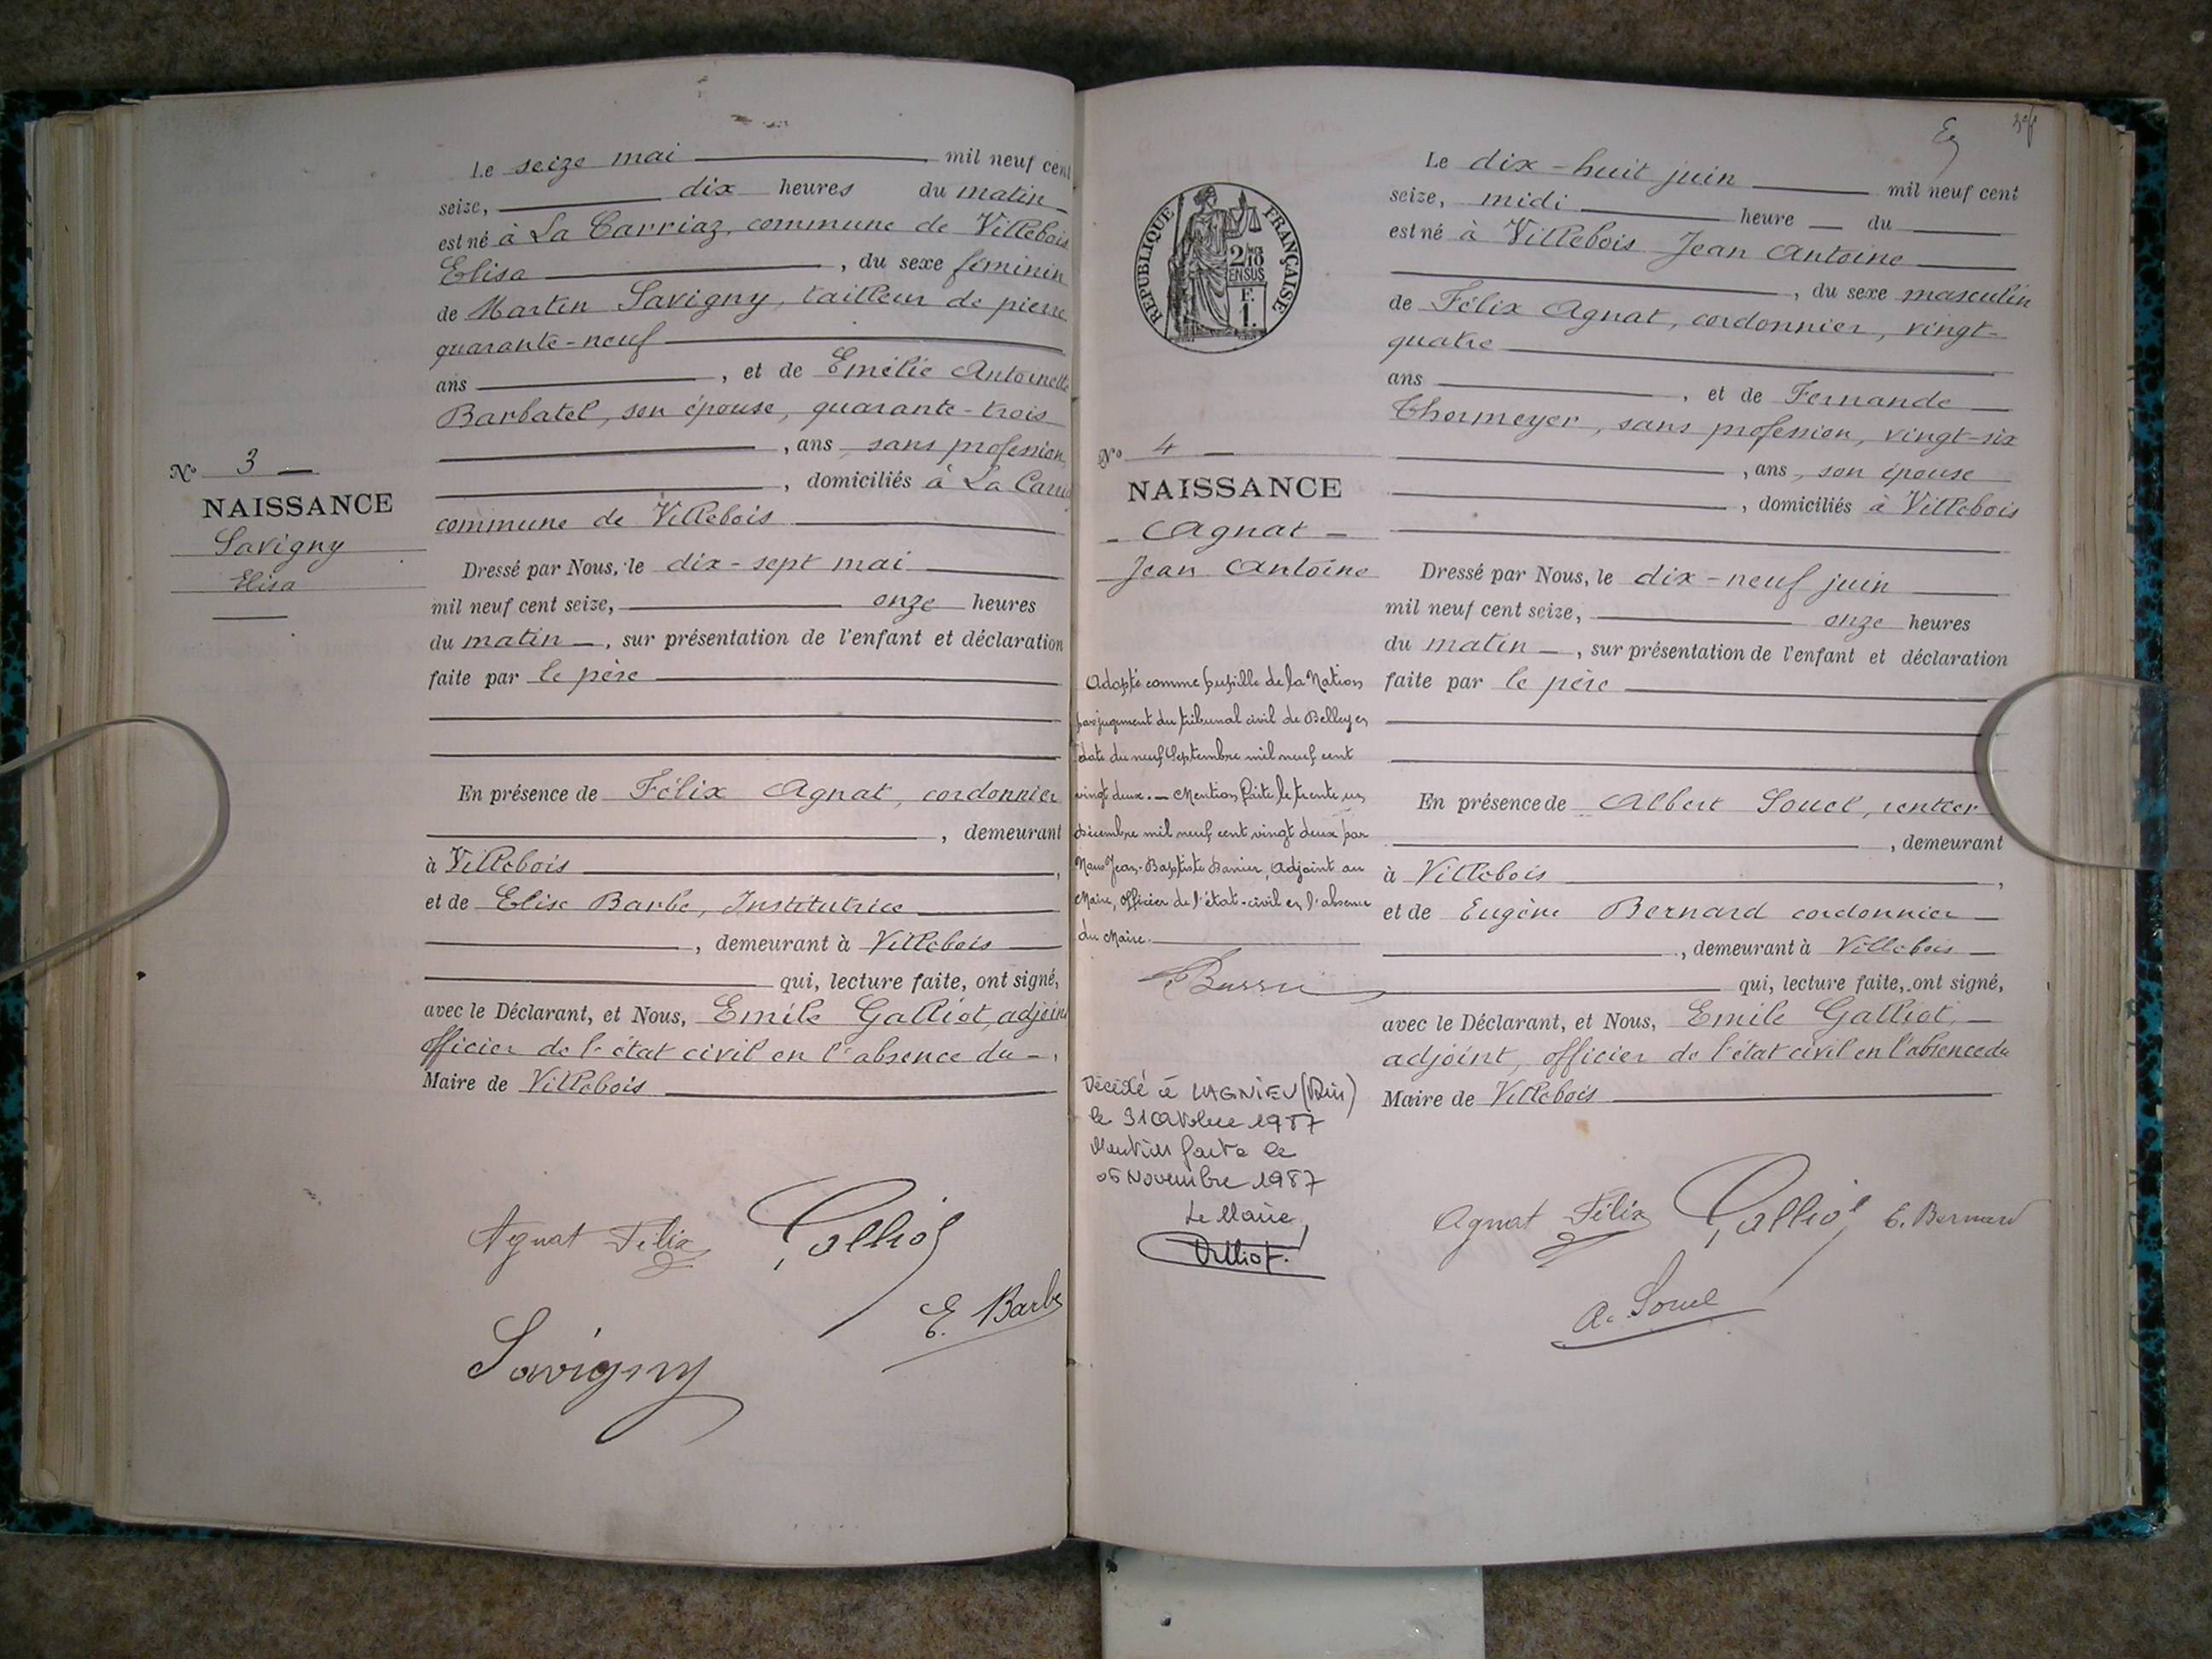 Le seize mai mil neuf cent
seize, dix heures du matin
est né à La Carriaz, commune de Villebois
Elisa, du sexe féminin
de Martin Savigny, tailleur de pierre
quarante-neuf
ans, et de Emélie Antoinette
Barbatel, son épouse, quarante-trois
, ans, sans profession
, domiciliés à La Carri
commune de Villebois
No 3
NAISSANCE
Savigny
Elisa
Dressé par Nous, le dix-sept mai
mil neuf cent seize, onze heures
du matin, sur présentation de l'enfant et déclaration
faite par le père
En présence de Félix Agnat, cordonnier
, demeurant
à Villebois,
et de Elise Barbe, Institutrice
, demeurant à Villebois
qui, lecture faite, ont signé,
avec le Déclarant, et Nous, Emile Galliot, adjoint
officier de l'état civil en l'absence du
Maire de Villebois
Agnat Félix Galliot
E. Barbe
Savigny
Le dix-huit juin mil neuf cent
seize, midi heure du
est né à Villebois Jean Antoine
, du sexe masculin
de Félix Agnat, cordonnier, vingt-
quatre
ans, et de Fernande
Thormeyer, sans profession, vingt-six
, ans, son épouse
, domiciliés à Villebois
RÉPUBLIQUE FRANÇAISE
2/10
EN SUS
F.
1.
No 4
NAISSANCE
Agnat
Jean Antoine
Dressé par Nous, le dix-neuf juin
mil neuf cent seize, onze heures
du matin, sur présentation de l'enfant et déclaration
faite par le père
En présence de Albert Souel, rentier
, demeurant
à Villebois,
et de Eugène Bernard cordonnier
, demeurant à Villebois
qui, lecture faite, ont signé,
avec le Déclarant, et Nous, Emile Galliot,
adjoint, officier de l'état civil en l'absence du
Maire de Villebois
Agnat Félix Galliot E. Bernard
A. Souel
Adopté comme pupille de la Nation
par jugement du tribunal civil de Belley en
date du neuf Septembre mil neuf cent
vingt deux. — Mention faite le trente un
décembre mil neuf cent vingt deux par
Nous Jean-Baptiste, Adjoint au
Maire, officier de l'état-civil en l'absence
du Maire.
Décédé à LAGNIEU (Ain)
le 31 octobre 1987
Mention faite le
05 Novembre 1987
Le Maire,